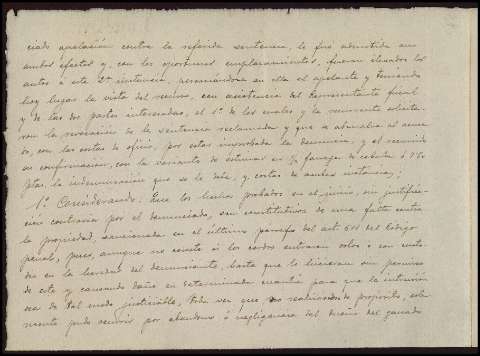 ciado apelación contra la referida sentencia, le fue admitida en
ambos efectos y, con los oportunos emplazamientos, fueron elevados los
autos á esta 2ª instancia, personándose en ella el apelante y teniendo
hoy lugar la vista del recurso, con asistencia del representante fiscal
y de las dos partes interesadas, el 1º de los cuales y la recurrente solicita-
ron la revocación de la sentencia reclamada y que se absuelva al acusa-
do, con las costas de oficio, por estar improbada la denuncia, y el recurrido
su confirmación, con la variante de estimar en ½ fanega de cebada ó
ptas la indemnización que se le debe, y costas de ambas instancias;
1º Considerando: Que los hechos probados en el juicio, sin justifica-
ción contraria por el denunciado, son constitutivos de una falta contra
la propiedad, sancionada en el último párrafo del art 611 del Código
penal, pues, aunque no conste si los cerdos entraron solos ó con custo-
dia en la heredad del denunciante, basta que lo hicieran sin permiso
de este y causando daño en determinada cuantía para que la intrusión
sea de tal modo justiciable, toda vez que no realizándose de propósito, sola-
mente pudo ocurrir por abandono ó negligencia del dueño del ganado